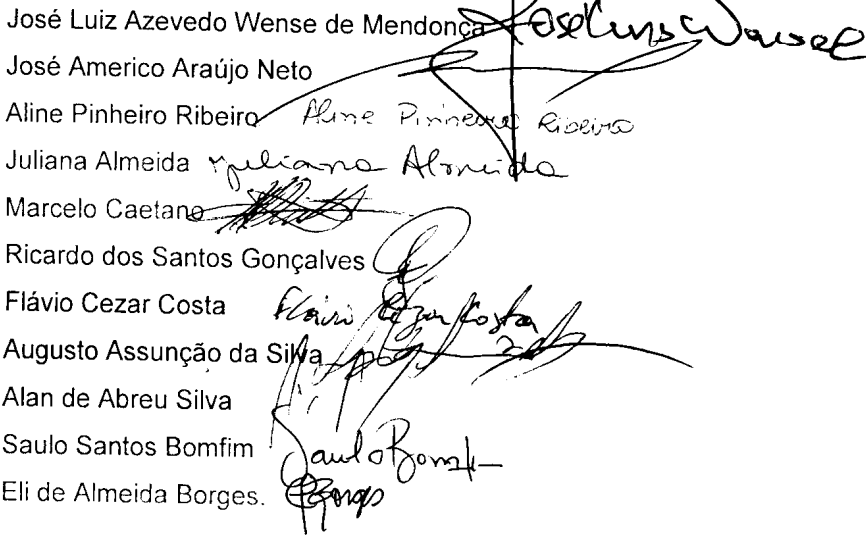 José Luiz Azevedo Wense de Mendonça
José Americo Araújo Neto
Aline Pinheiro Ribeiro Aline Pinheiro Ribeiro
Juliana Almeida Juliana Almeida
Marcelo Caetano
Ricardo dos Santos Gonçalves
Flávio Cezar Costa Flávio Cezar Costa
Augusto Assunção da Silva
Alan de Abreu Silva
Saulo Santos Bomfim Saulo Bomfim
Eli de Almeida Borges. Borges